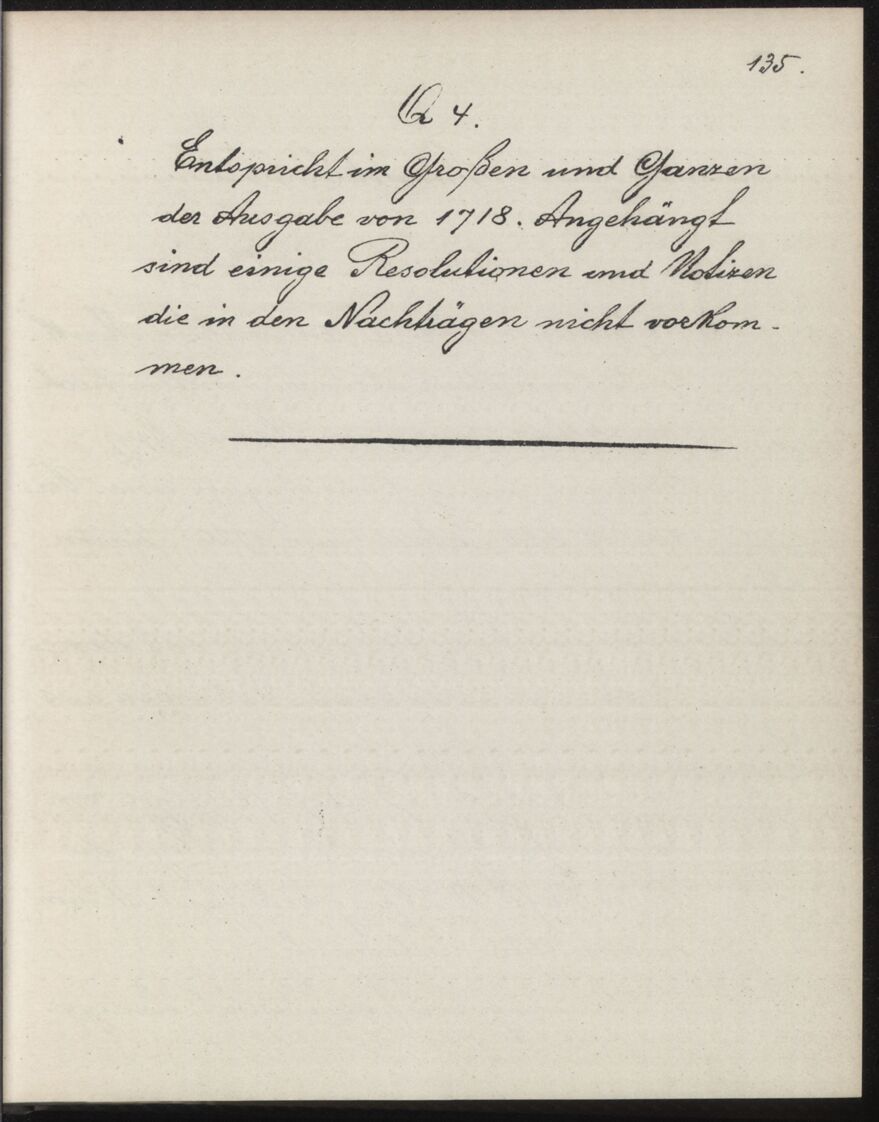 135.
Q 4.
Entspricht im Großen und Ganzen
der Ausgabe von 1718. Angehängt
sind einige Resolutionen und Notizen
die in den Nachträgen nicht vorkom-
men.